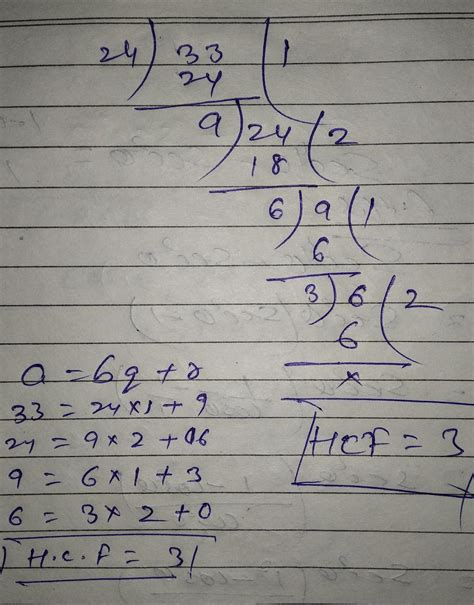 24 ) 33 ( 1
24
9 ) 24 ( 2
18
6 ) 9 ( 1
6
3 ) 6 ( 2
6
×
HCF = 3
a = bq + r
33 = 24 × 1 + 9
24 = 9 × 2 + 06
9 = 6 × 1 + 3
6 = 3 × 2 + 0
H.C.F = 3